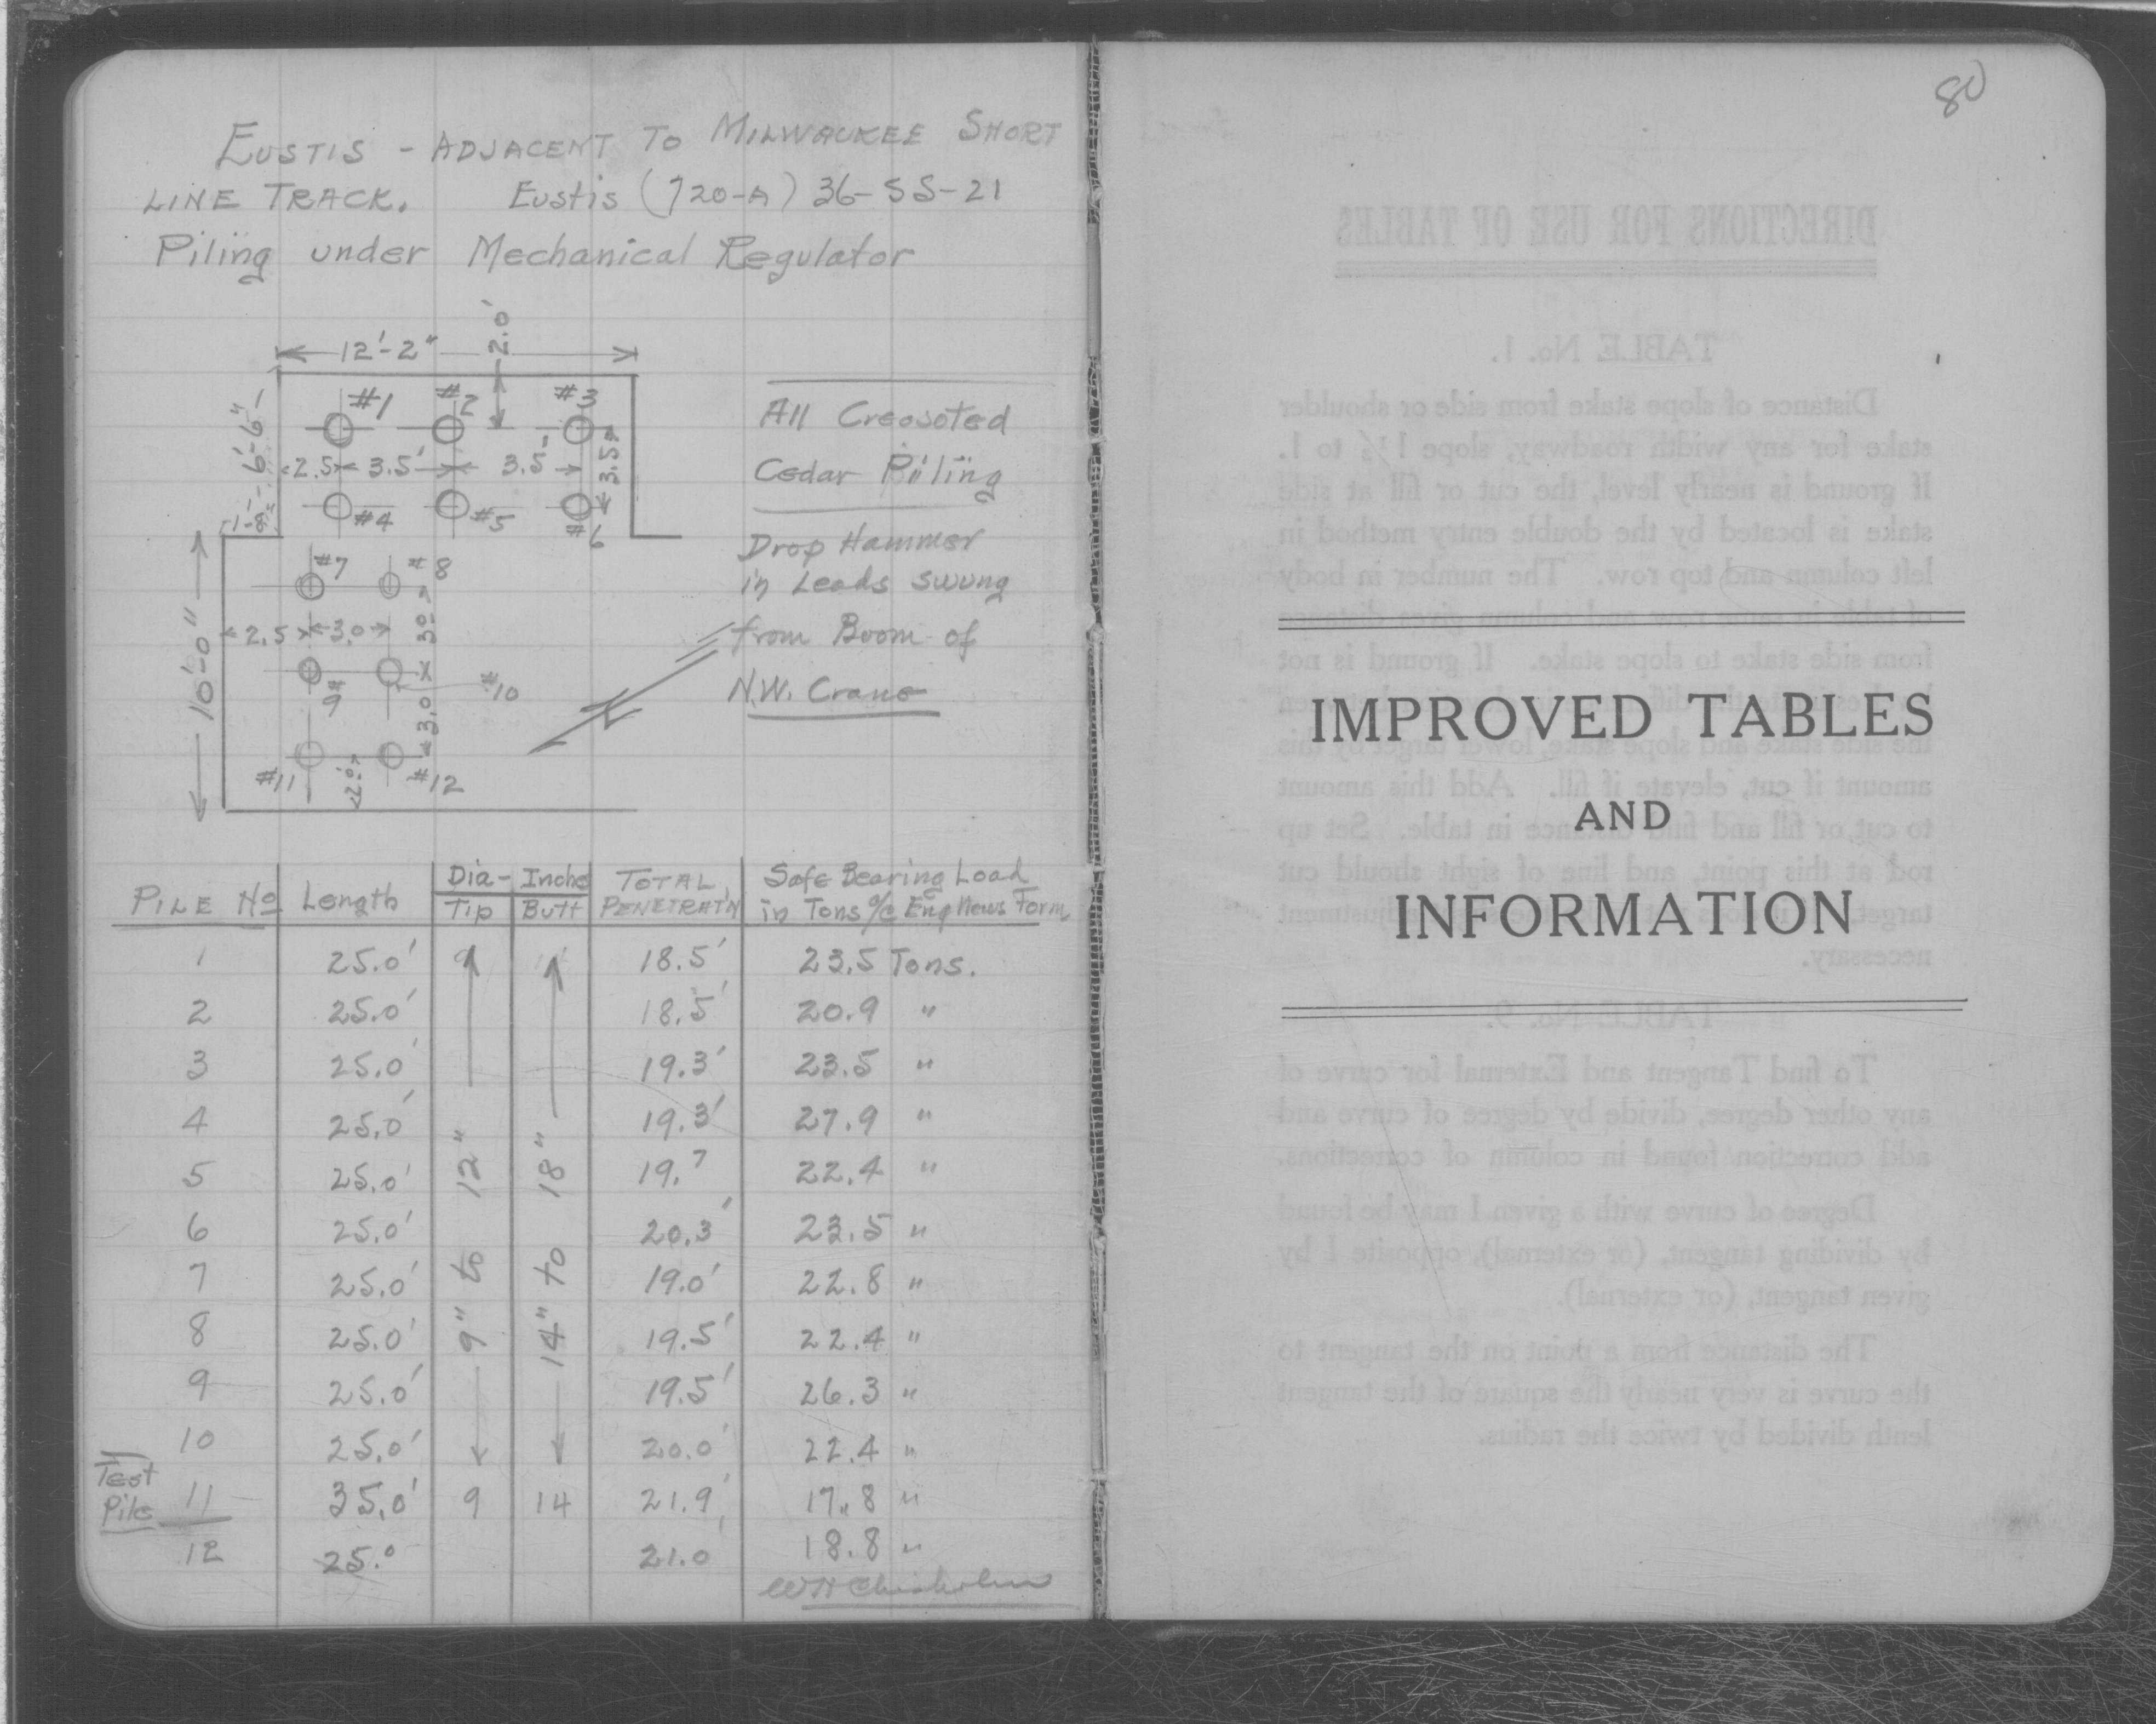 EUSTIS - ADJACENT TO MILWAUKEE SHORT
LINE TRACK. Eustis (720-A) 36-SS-21
Piling under Mechanical Regulator
12'-2" 2.0'
#1 #2 #3
6'-6"
2.5 3.5' 3.5' 3.5
1'-8" #4 #5 #6
All Creosoted
Cedar Piling
Drop Hammer
in Leads swung
from Boom of
N.W. Crane
#7 #8
10'-0" 2.5 3.0 3.0
#9 #10
3.0
#11 2.0' #12
PILE No Length Dia- Inche TOTAL PENETRAT'N Safe Bearing Load
Tip Butt in Tons %c Eng News Form
1 25.0' 18.5' 23.5 Tons.
2 25.0' 18.5' 20.9 "
3 25.0' 19.3' 23.5 "
4 25.0' 19.3' 27.9 "
5 25.0' 19.7 22.4 "
6 25.0' 20.3' 23.5 "
7 25.0' 19.0' 22.8 "
8 25.0' 19.5' 22.4 "
9 25.0' 19.5' 26.3 "
10 25.0' 20.0' 22.4 "
9" to 12"
14" to 18"
Test
Pile 11 35.0' 9 14 21.9' 17.8 "
12 25.0 21.0' 18.8 "
W H Chisholm
80
IMPROVED TABLES
AND
INFORMATION